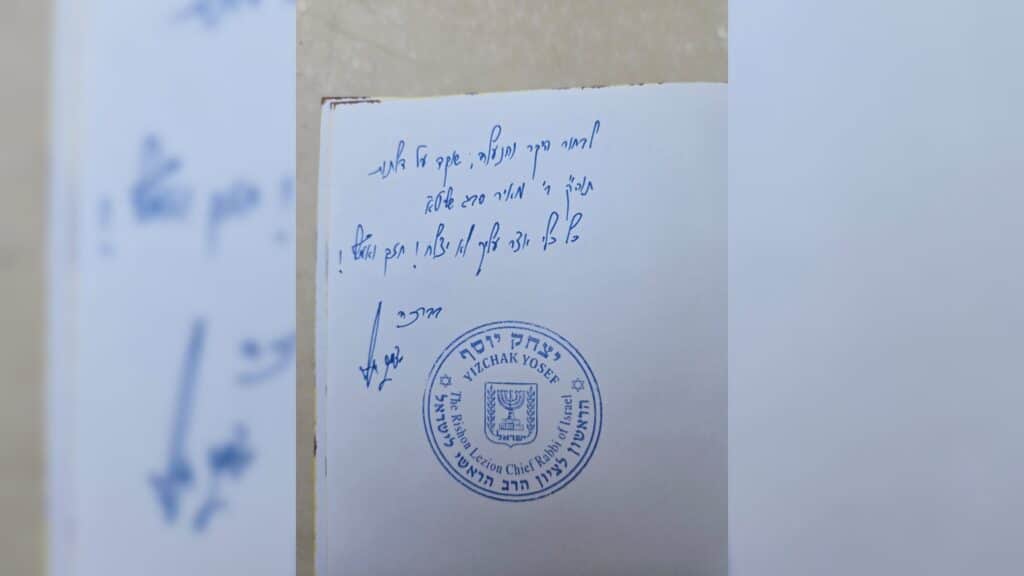 לבחור היקר והנעלה, שקד על דלתות
תוה"ק ר' מאיר סבג שליט"א
כל כלי יוצר עליך לא יצלח! חזק ואמץ!
בברכה
יצחק יוסף
יצחק יוסף
YIZCHAK YOSEF
The Rishon Lezion Chief Rabbi of Israel
הראשון לציון הרב הראשי לישראל
ישראל